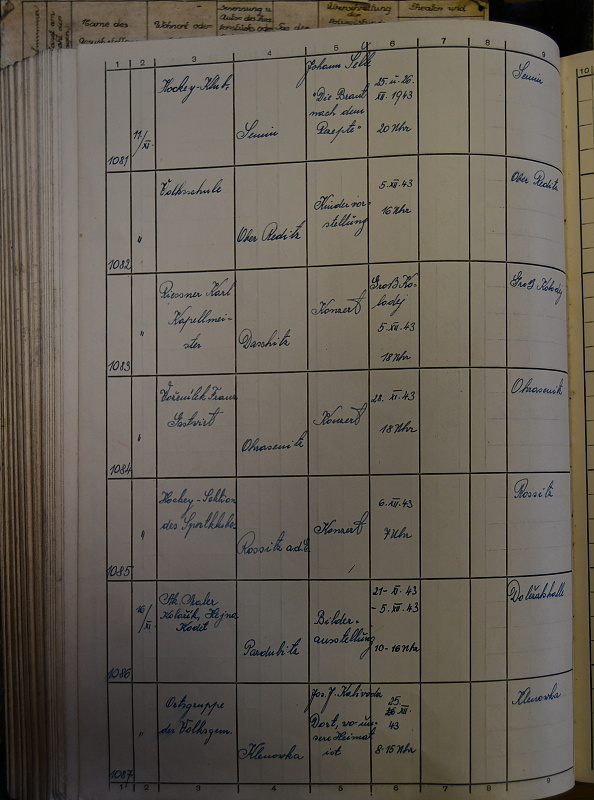 Name des
Wohnort oder
1 2 3 4 5 6 7 8 9
10
1081
11/XI.
Hockey-Klub,
Semin
Johann Selb
"Die Braut
nach dem
Rezepte"
25. u. 26.
XII. 1943
20 Uhr
Semin
1082
"
Volksschule
Ober Reditz
Kindervor-
stellung
5. XII. 43
16 Uhr
Ober Reditz
1083
"
Riessner Karl
Kapellmei-
ster
Daschitz
Konzert
Groß Ko-
lodej
5. XII. 43
18 Uhr
Groß Kolodej
1084
"
Franz
Gastwirt
Ohrasenitz
Konzert
28. XI. 43
18 Uhr
Ohrasenitz
1085
"
Hockey-Sektion
des Sportklubs
Rossitz a.d.E.
Konzert
6. XII. 43
7 Uhr
Rossitz
1086
16/XI
Ak. Maler
Kolařík, Hejna
Kodet
Pardubitz
Bilder-
ausstellung
21- XI. 43
- 5. XII. 43
10-16 Uhr
1087
"
Ortsgruppe
der Volksgem.
Klenowka
Jos. J. Kalivoda
Dort, wo un-
sere Heimat
ist
25
26. XII.
43
8·15 Uhr
Klenowka
1 2 3 4 5 6 7 8 9